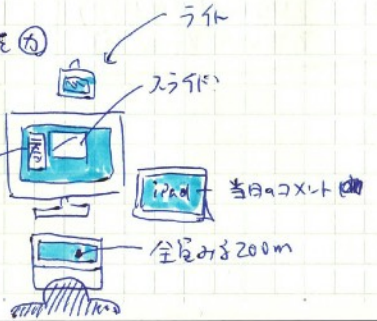 ライト
スライド
iPad 当日のコメント
全員みる200m